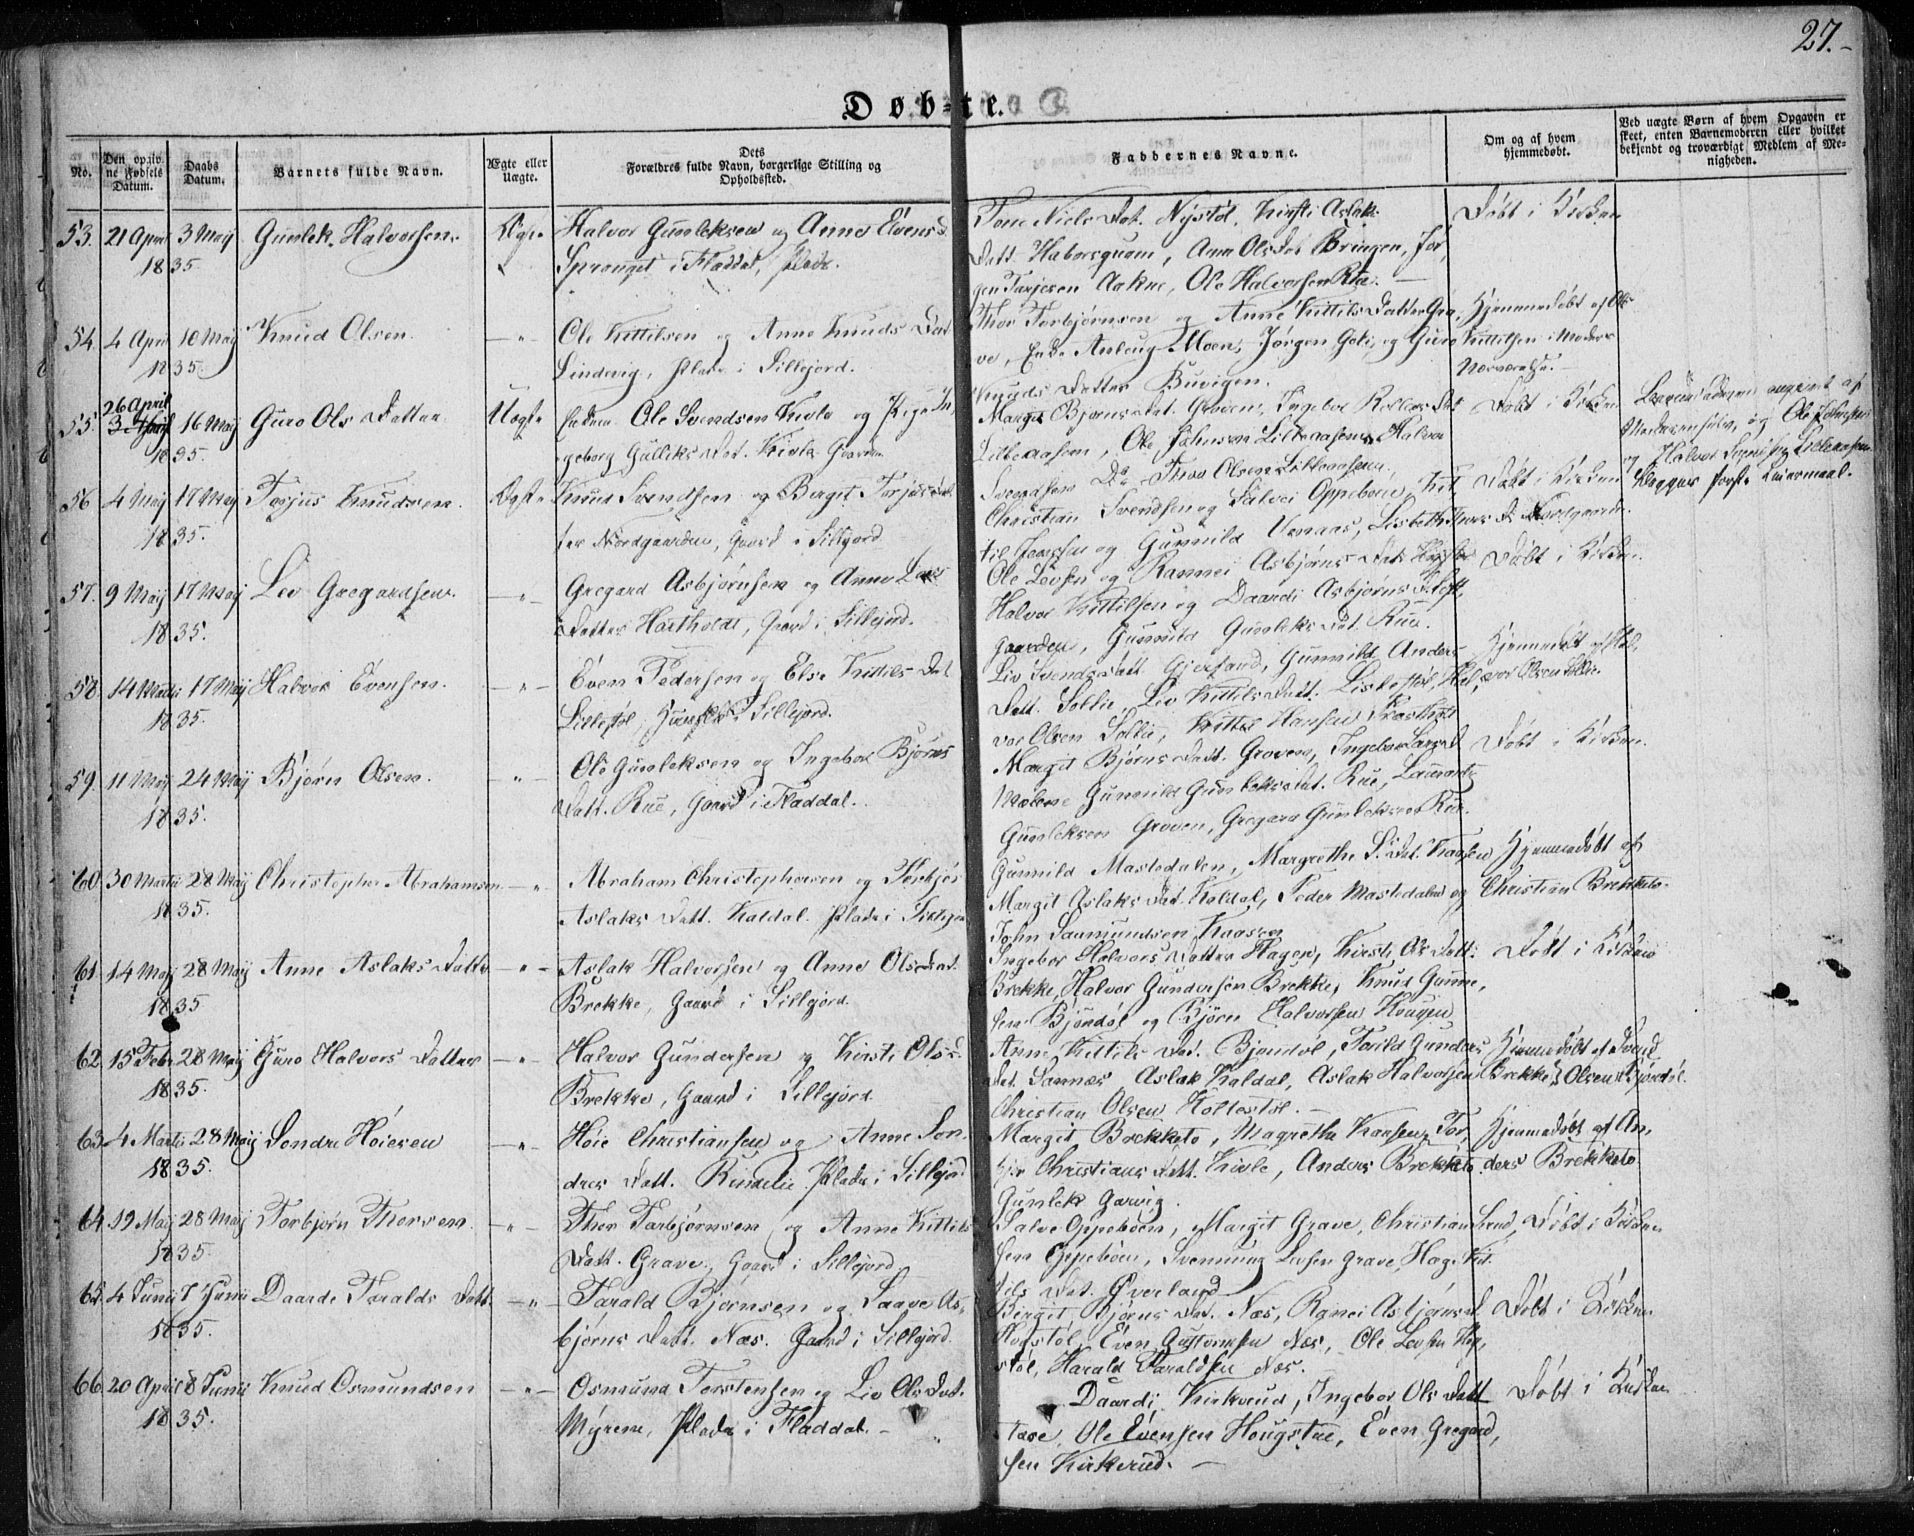 27.
Døbte.
No.
Den opgivne Fødsels Datum.
Daabs Datum.
Barnets fulde Navn.
Ægte eller Uægte.
Dets Forældres fulde Navn, borgerlige Stilling og Opholdssted.
Faddernes Navne.
Om og af hvem hjemmedøbt.
Ved uægte Børn af hvem Opgaven er skeet, enten Barnemoderen eller hvilket bekjendt og troværdigt Medlem af Menigheden.
53. 21 April 3 Maij Gunlek Halvorsen. Ægte Halvor Gunleksen og Anne Evensd.
1835. Spronget i Fladdal, Plads.
Tone Niels Dat. Nystøl, Kirsti Aslak
Datt. Haborsquam, Anne Olsdat Bringen, Jør
gen Tarjesen Aakne, Ole Halvorsen Rue.
Døbt i Kirken
54. 4 April 10 Maij Knud Olsen. Ole Kittilsen og Anne Knuds Dat
1835. Lindevig, Plads i Sillejord.
Thor Torbjørnsen og Anne Kittils Datter Gra,
ve, Moen, Jørgen og Guro
Knuds Datter Buvigen.
Hjemmedøbt af Ole
Kittilsen i Moders
Nærværelse.
55. 26 April 16 Maij Guro Ols Datter Uægte Ole Svendsen Kivle og Pige In
1835. geborg Gulliks Dat. Kivle Gaard
Margit Bjørns Dat. Groven, Ingebor Dat
Lilleaasen, Ole Johnsen Lilleaasen, Halvor
Svendsen Do Thor Olsen Lilleaasen.
Døbt i Kirken
Barnefaderen angivet af
Moderen selv, og Ole Johnsen
og Halvor Lilleaasen
Begges første Leiermaal.
56 4 Maij 17 Maij Torjus Knudsen. Ægte Knud Svendsen og Bergit Torjus Dat
1835. ter Nordgaarden, Gaard i Sillejord
Christian Svendsen og Salvei Oppebøen, Kit
til Jonssen og Gunnild Vinaas, Lisbeth Nordgaarden.
Døbt i Kirken
57. 9 Maij 17 Maij Lev Gregardsen. Gregard Asbjørnsen og Anne Levs
1835. Datter Hartholdt, Gaard i Sillejord.
Ole Levsen og Rannei Asbjørns Dat
Halvor Kittilsen og Daardi Asbjørns Dat
gaarden, Gunnild Gunleks Dat. Rue.
Døbt i Kirken.
58 14 Martii 17 Maij Halvor Evensen. Even Pedersen og Else Kittils Dat
1835. Lillestøl, i Sillejord.
Liv Svends Datt. Gjersund, Gunnild Anders
Datt. Sollie, Liv Kittils Datt. Lillestøl, Hal,
vor Olsen Sollie, Kittil Hansen
Hjemmedøbt af Hal,
vor Olsen Sollie.
59. 11 Maij 24 Maij Bjørn Olsen. Ole Gunleksen og Ingebor Bjørns
1835. Datt. Rue, Gaard i Fladdal.
Margit Bjørns Datt. Groven, Ingebor
Gunnild Gunleks Dat. Rue, Laurants
Gunleksen Groven, Gregard Gunleksen Rue.
Døbt i Kirken.
60. 30 Martii 28 Maij Christopher Abrahamsen Abraham Christophersen og Torbjør
1835. Aslaks Datt. Kaldal. Plads i Sillejord
Gunnild Mastedalen, Margrethe S. Dat. Kaasen
Margit Aslaks Dat. Kaldal, Peder Mastedalen og
John Saamundsen Kaasen
Hjemmedøbt af
Christian Brekketo.
61 14 Maij 28 Maij Anne Aslaks Datter Aslak Halvorsen og Anne Olsdat.
1835 Brekke, Gaard i Sillejord
Ingebor Halvors Datter Hagen, Kirsti Ols Datt.
Brekke, Halvor Gundersen Brekke, Knud Gunne,
sen Bjøndøl og Bjørn Halvorsen Hougen
Døbt i Kirken
62 15 Febr 28 Maij Guro Halvors Datter Halvor Gundersen og Kirsti Ols D
1835. Brekke, Gaard i Sillejord
Anne Kittils Dat. Bjøndøl, Torild Gunders
Dat. Sannæs Aslak Kaldal, Aslak Halvorsen Brekke
Christian Olsen Holtestøl.
Hjemmedøbt af Svend
Olsen Bjøndøl.
63. 4 Martii 28 Maij Sondre Høiesen Høie Christiansen og Anne Son,
1835. dres Datt. Rindelie Plads i Sillejord
Margit Brekketo, Magrethe Kaasen, Tor,
bjør Christians Datt. Kivle, Anders Brekketo
Gunlek Garvig.
Hjemmedøbt af An,
ders Brekketo
64. 19 Maij 28 Maij Torbjørn Thorsen. Thor Torbjørnsen og Anne Kittils
1835. Datt. Grave, Gaard i Sillejord
Salve Oppebøen, Margit Grave, Christian Svend
sen Oppebøen, Svennung Grave, Hage Kit
tils Dat. Overland
Døbt i Kirken
65. 4 Junii 7 Junii Daarde Taralds Datt. Tarald Bjørnsen og Saave As,
1835. bjørns Datt. Næs. Gaard i Sillejord
Birgit Bjørns Dat. Næs, Ranei Asbjørns D
Hogstøl, Even Guttormsen Næs, Ole Levsen Hog,
støl, Harald Taraldsen Næs.
Døbt i Kirken
66. 20 April 8 Junii Knud Osmundsen Osmund Torstensen og Liv Ols Dat.
1835. Myrene, Plads i Fladdal.
Daardi Kirkerud, Ingebor Ols Datt
Ole Evensen Hougstue, Even Gregard,
sen Kirkerud.
Døbt i Kirken